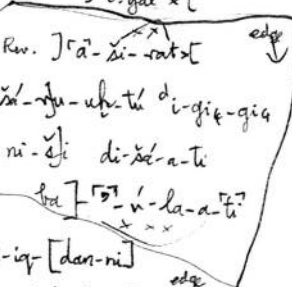 Rev. ]⌜a⌝-ši-rat×[ edge
uḫ-tú ᵈi-gi₄-gi₄
di-šá-a-ti
ba]-⌜ʾ⌝-ú-la-a-⌜ti⌝
-iq-[dan-ni]
edge